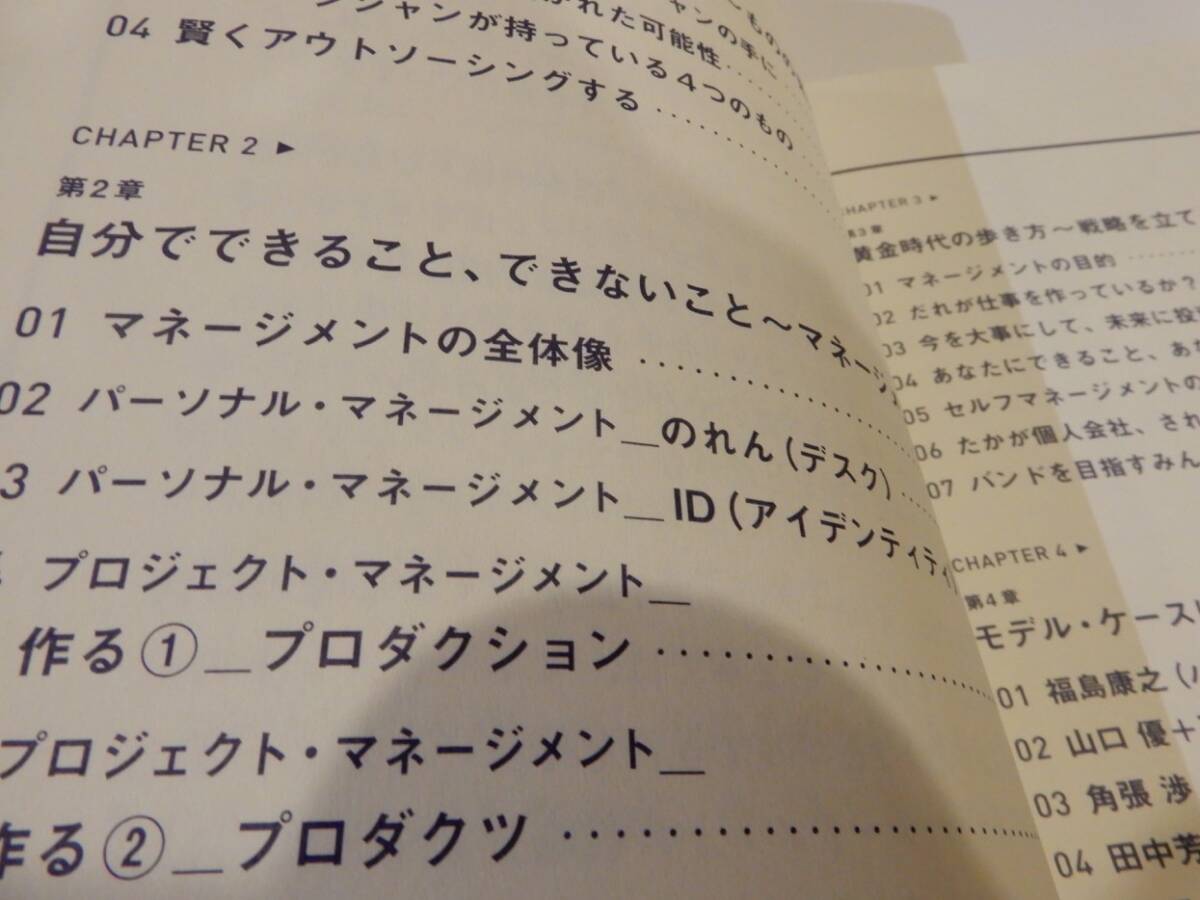 〜ものの
ャンの手に
かれた可能性‥‥
ジシャンが持っている4つのもの
04 賢くアウトソーシングする ‥‥‥‥
CHAPTER 2 ▶
第2章
自分でできること、できないこと〜マネージ
01 マネージメントの全体像 ‥‥‥‥‥‥
02 パーソナル・マネージメント__のれん(デスク) ‥‥
3 パーソナル・マネージメント__ID(アイデンティティ
プロジェクト・マネージメント__
作る①__プロダクション ‥‥‥‥‥‥
プロジェクト・マネージメント__
作る②__プロダクツ ‥‥‥‥‥‥
CHAPTER 3 ▶
第3章
黄金時代の歩き方〜戦略を立て
01 マネージメントの目的 ‥‥‥
02 だれが仕事を作っているか?
03 今を大事にして、未来に投
04 あなたにできること、あ
05 セルフマネージメントの
06 たかが個人会社、され
07 バンドを目指すみん
CHAPTER 4 ▶
第4章
モデル・ケース
01 福島康之(
02 山口 優+
03 角張 渉
04 田中芳